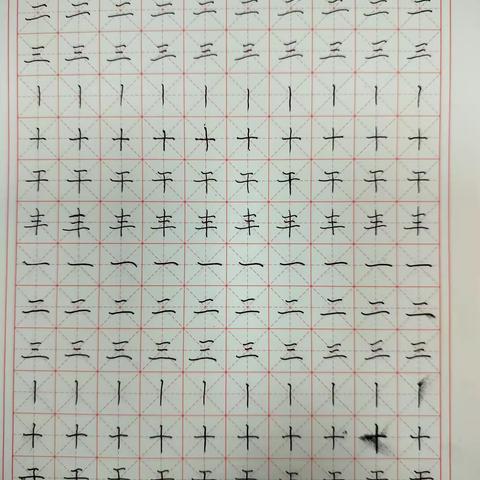 二二二二二二二二二二
三三三三三三三三三三
丨丨丨丨丨丨丨丨丨丨
十十十十十十十十十十
干干干干干干干干干干
丰丰丰丰丰丰丰丰丰丰
一一一一一一一一一一
二二二二二二二二二二
三三三三三三三三三三
丨丨丨丨丨丨丨丨丨丨
十十十十十十十十十十